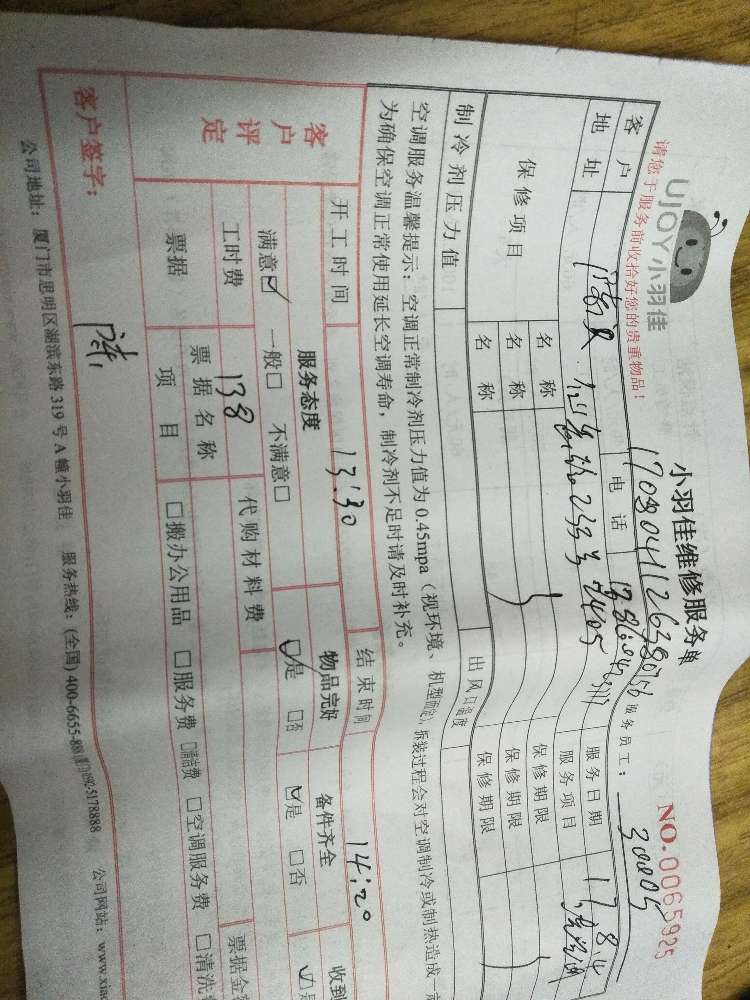 UJOY小羽佳
小羽佳维修服务单
NO.0065925
请您于服务前收拾好您的贵重物品!
服务员工:
300805
客户
电话
服务日期
17.8.4
地址
233号2405
服务项目
保修项目
名称
保修期限
名称
保修期限
名称
保修期限
制冷剂压力值
出风口温度
空调服务温馨提示:空调正常制冷剂压力值为0.45mpa(视环境、机型而定),拆装过程会对空调制冷或制热造成一定
为确保空调正常使用延长空调寿命,制冷剂不足时请及时补充。
客户评定
开工时间
13:30
结束时间
14:20
服务态度
物品完好
备件齐全
收到
满意☑ 一般□ 不满意□
☑是 □否
☑是 □否
工时费
138
代购材料费
票据
票据名称
票据金
项目
□搬办公用品 □服务费 □清洁费 □空调服务费 □清洗
客户签字:
公司地址:厦门市思明区湖滨东路319号A幢小羽佳 服务热线:(全国)400-6655-888(厦门)0592-5178888 公司网站:www.xiao